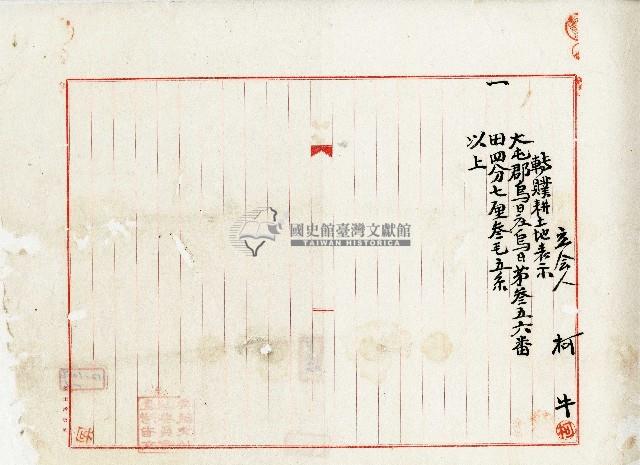 立会人 柯 牛
轉贌耕土地表示
一 大屯郡烏日庄烏日第叁五六番
田四分七厘叁毛五糸
以上
柯
國史館臺灣文獻館
TAIWAN HISTORICA